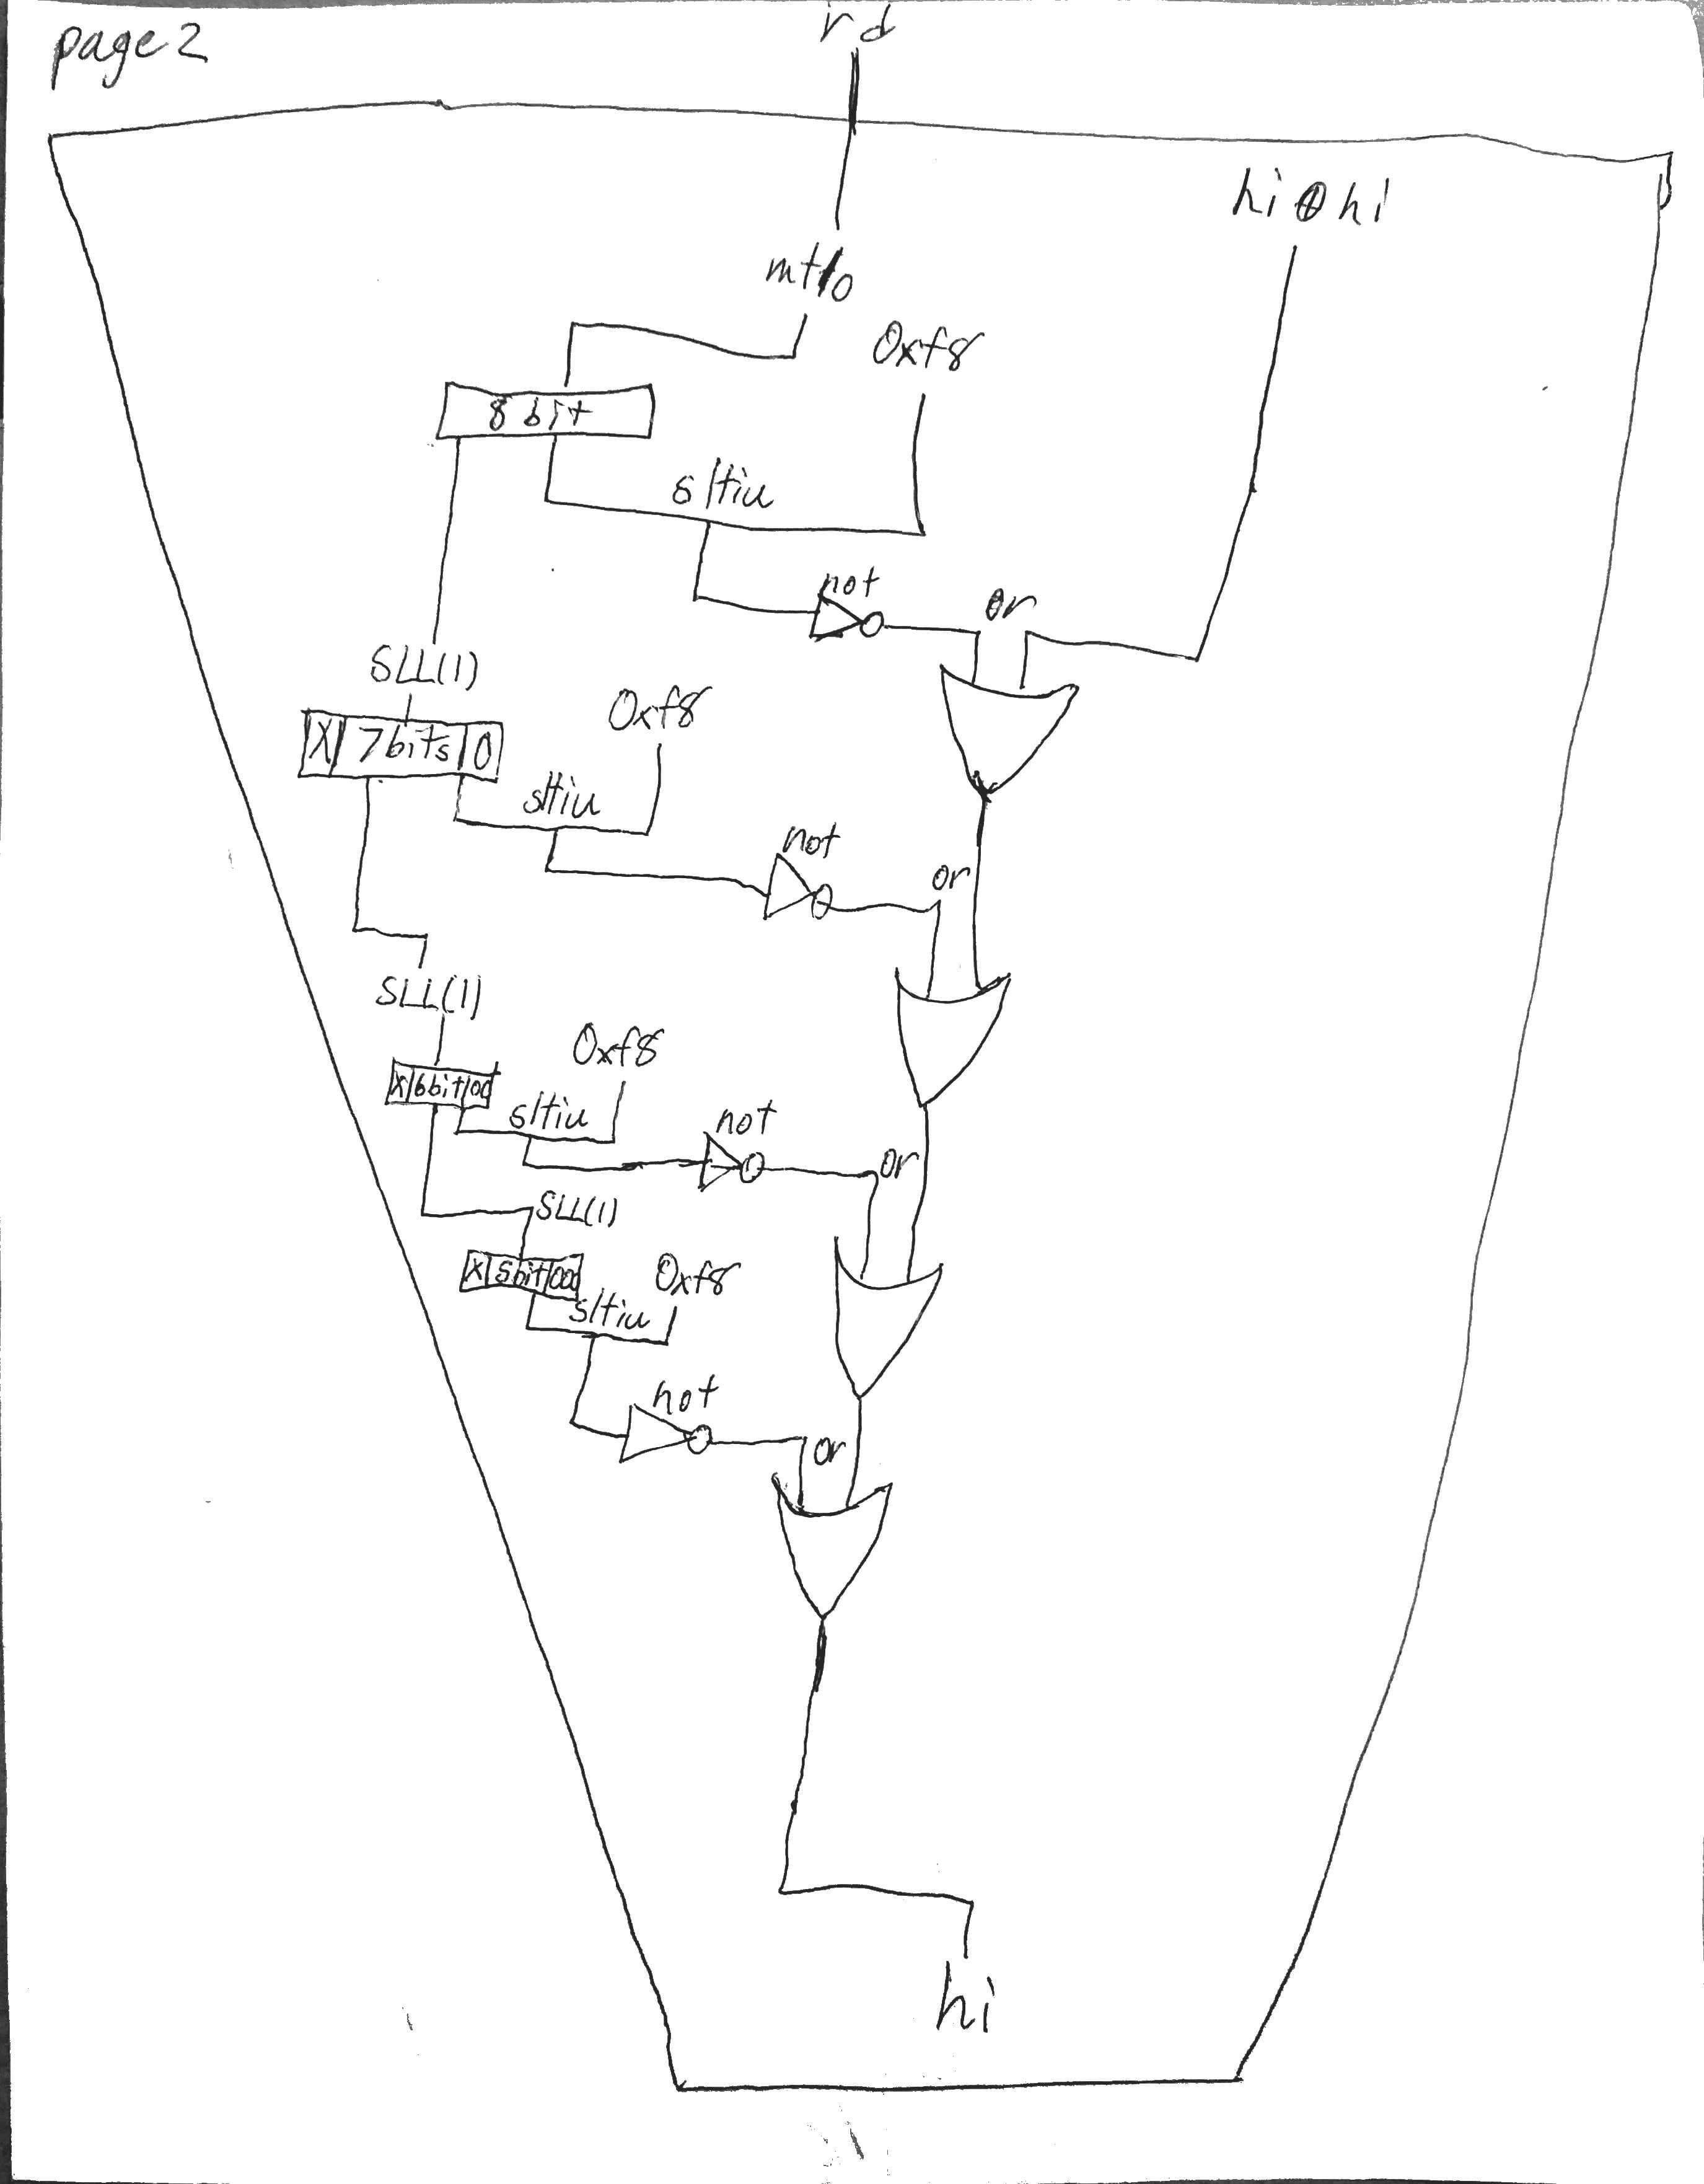 page 2
rd
hi⊕hi
mtlo
0xf8
8 bit
sltiu
not
or
SLL(1)
0xf8
X 7bits 0
sltiu
not
or
SLL(1)
0xf8
X 6bit 00
sltiu
not
or
SLL(1)
X 5bit 000
0xf8
sltiu
not
or
hi